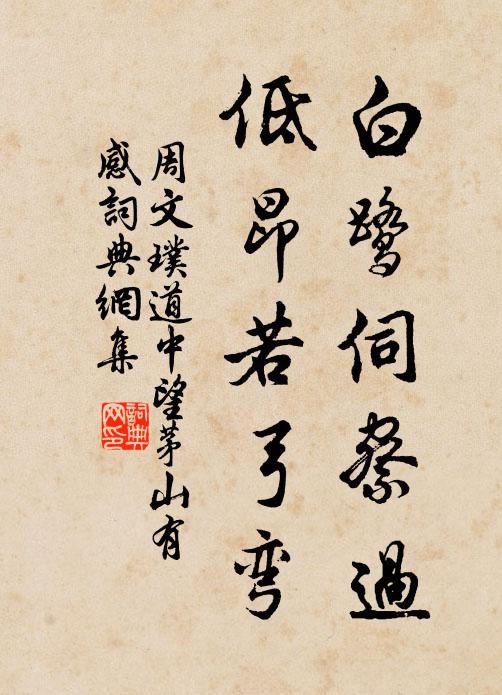 白鹭伺察過
低昂若弓弯
周文璞道中望茅山有
感詞典網集
詞典
网印